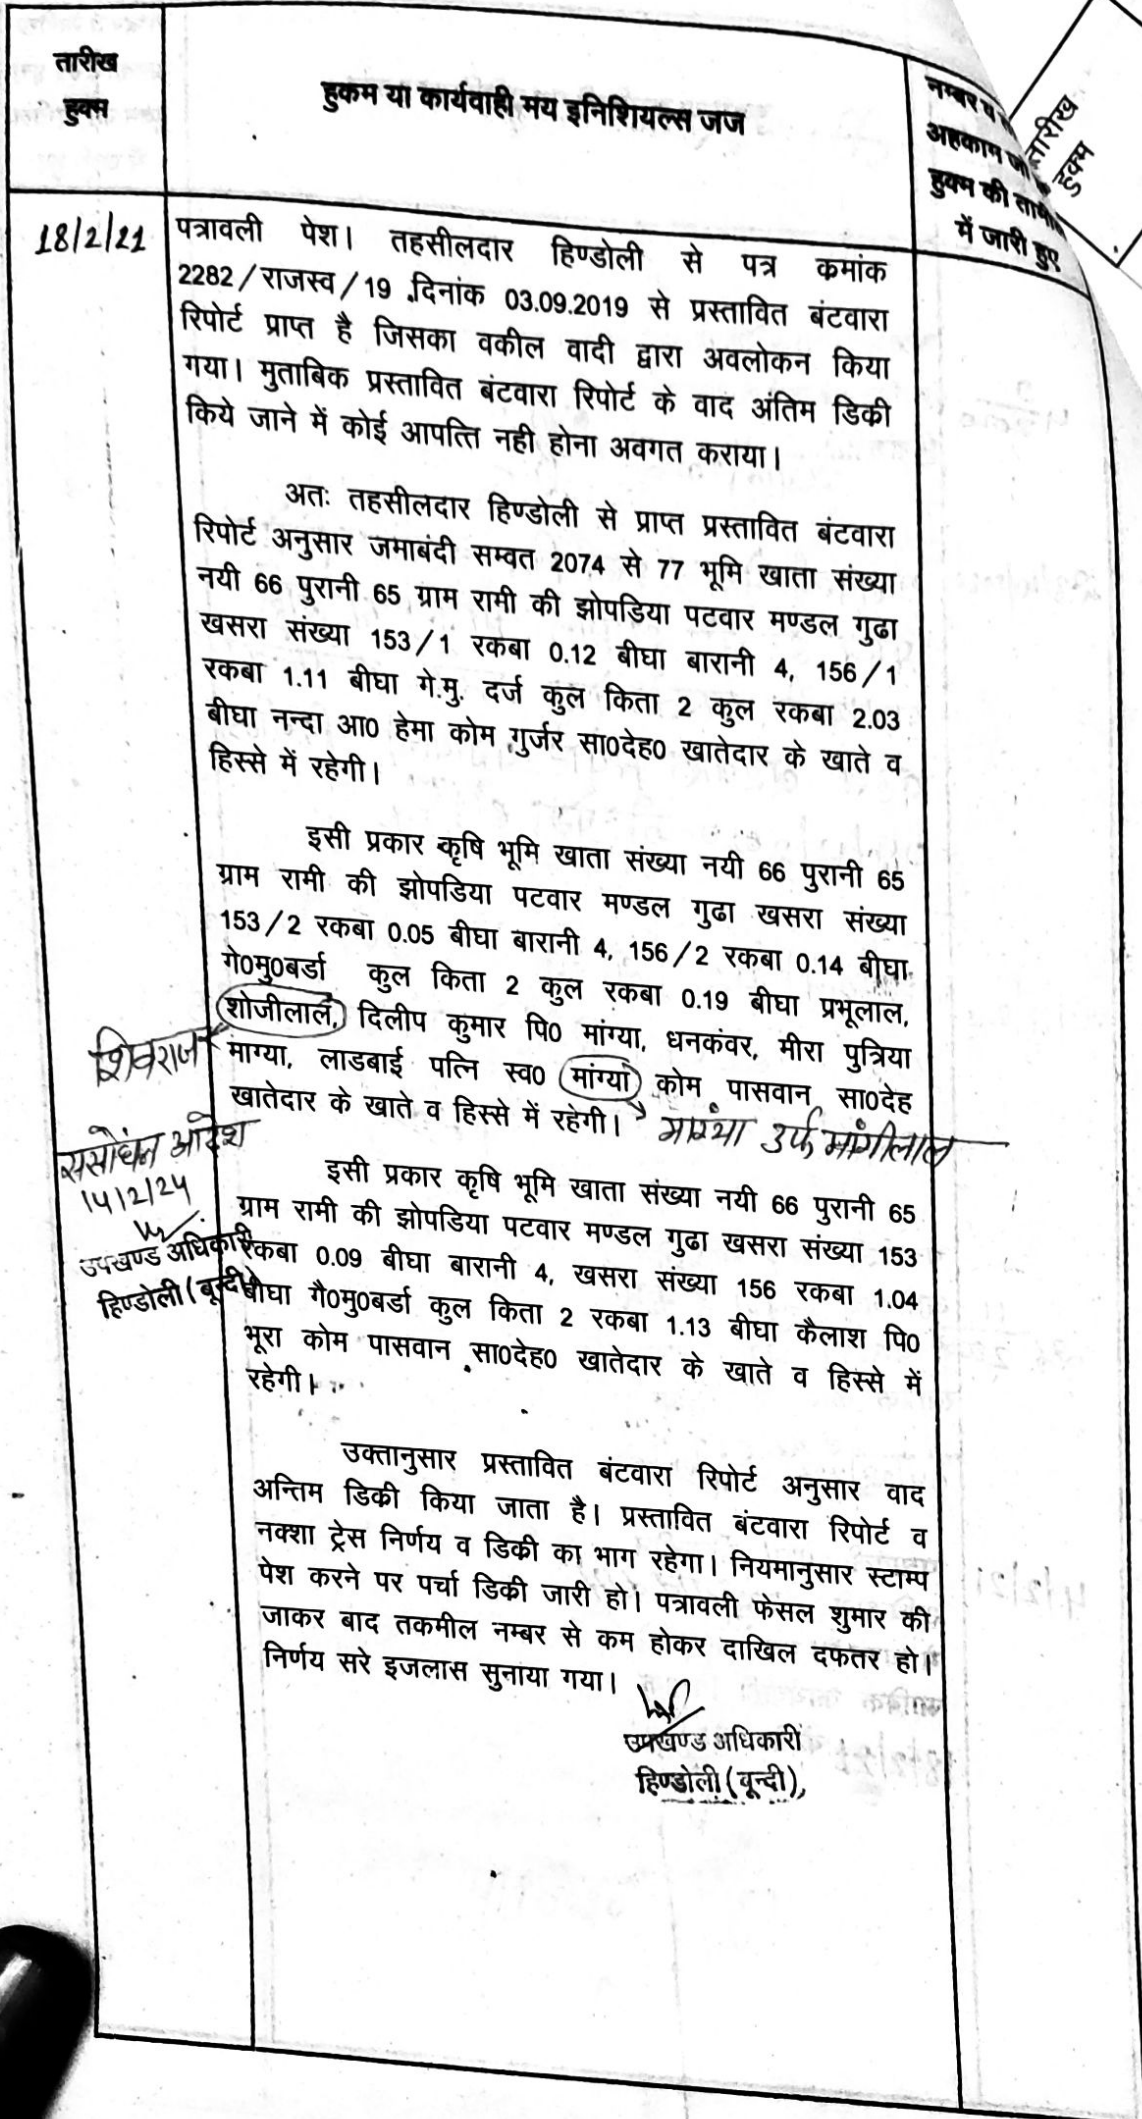 तारीख
हुक्म
हुकम या कार्यवाही मय इनिशियल्स जज
नम्बर व
अहकाम जो
हुक्म की
में जारी हुए
तारीख
हुक्म
18/2/21
पत्रावली पेश। तहसीलदार हिण्डोली से पत्र कमांक
2282/राजस्व/19 दिनांक 03.09.2019 से प्रस्तावित बंटवारा
रिपोर्ट प्राप्त है जिसका वकील वादी द्वारा अवलोकन किया
गया। मुताबिक प्रस्तावित बंटवारा रिपोर्ट के वाद अंतिम डिकी
किये जाने में कोई आपत्ति नही होना अवगत कराया।
अतः तहसीलदार हिण्डोली से प्राप्त प्रस्तावित बंटवारा
रिपोर्ट अनुसार जमाबंदी सम्वत 2074 से 77 भूमि खाता संख्या
नयी 66 पुरानी 65 ग्राम रामी की झोपडिया पटवार मण्डल गुढा
खसरा संख्या 153/1 रकबा 0.12 बीघा बारानी 4, 156/1
रकबा 1.11 बीघा गे.मु. दर्ज कुल किता 2 कुल रकबा 2.03
बीघा नन्दा आ0 हेमा कोम गुर्जर सा0देह0 खातेदार के खाते व
हिस्से में रहेगी।
इसी प्रकार कृषि भूमि खाता संख्या नयी 66 पुरानी 65
ग्राम रामी की झोपडिया पटवार मण्डल गुढा खसरा संख्या
153/2 रकबा 0.05 बीघा बारानी 4, 156/2 रकबा 0.14 बीघा
गे0मु0बर्डा कुल किता 2 कुल रकबा 0.19 बीघा प्रभूलाल,
शोजीलाल, दिलीप कुमार पि0 मांग्या, धनकंवर, मीरा पुत्रिया
शिवराज
माग्या, लाडबाई पत्नि स्व0 मांग्या कोम पासवान सा0देह
खातेदार के खाते व हिस्से में रहेगी।
माग्या उर्फ मांगीलाल
ससोधंन आदेश
14/2/24
उपखण्ड अधिकारी
हिण्डोली (बून्दी)
इसी प्रकार कृषि भूमि खाता संख्या नयी 66 पुरानी 65
ग्राम रामी की झोपडिया पटवार मण्डल गुढा खसरा संख्या 153
रकबा 0.09 बीघा बारानी 4, खसरा संख्या 156 रकबा 1.04
बीघा गै0मु0बर्डा कुल किता 2 रकबा 1.13 बीघा कैलाश पि0
भूरा कोम पासवान सा0देह0 खातेदार के खाते व हिस्से में
रहेगी।
उक्तानुसार प्रस्तावित बंटवारा रिपोर्ट अनुसार वाद
अन्तिम डिकी किया जाता है। प्रस्तावित बंटवारा रिपोर्ट व
नक्शा ट्रेस निर्णय व डिकी का भाग रहेगा। नियमानुसार स्टाम्प
पेश करने पर पर्चा डिकी जारी हो। पत्रावली फेसल शुमार की
जाकर बाद तकमील नम्बर से कम होकर दाखिल दफतर हो।
निर्णय सरे इजलास सुनाया गया।
उपखण्ड अधिकारी
हिण्डोली (बून्दी),